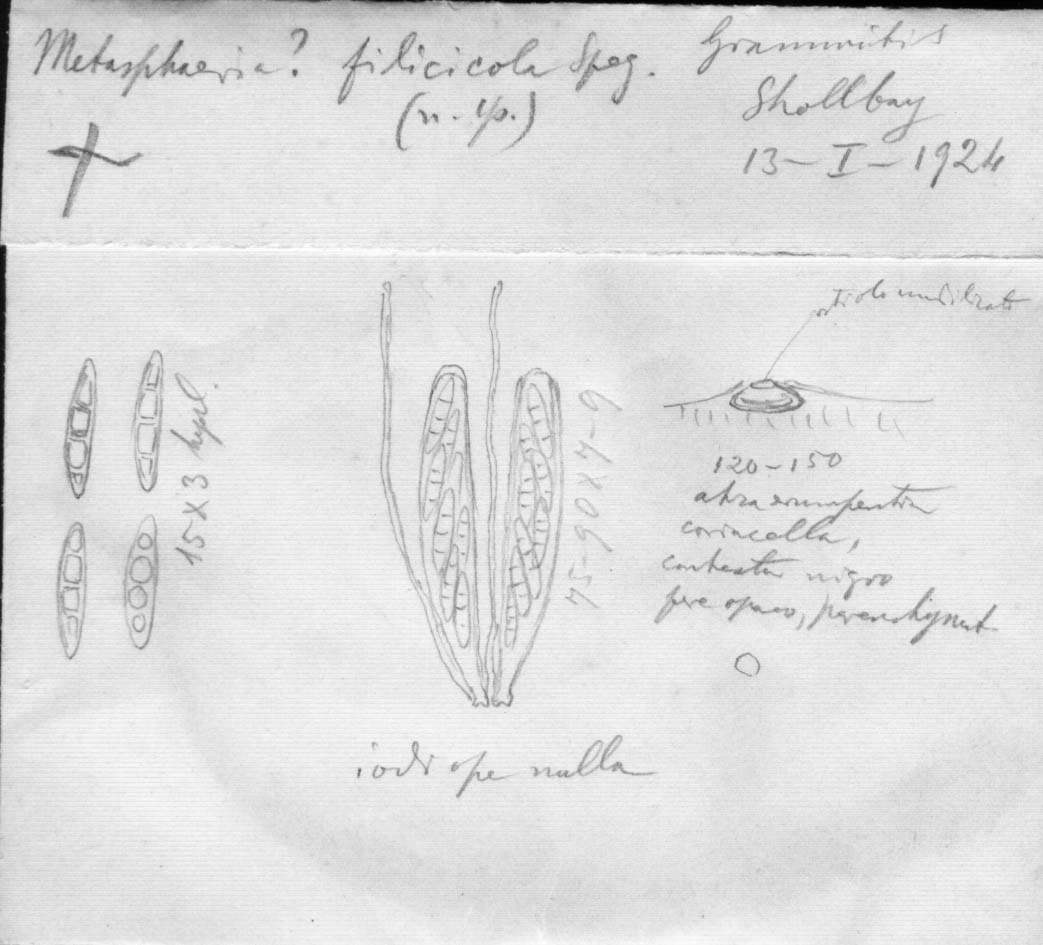 Metasphaeria? filicicola Speg. Grammitis
(n. sp.)
Shollbay
13-I-1924
15 X 3 hyal.
75-90 X 7-9
120-150
atra erumpentia
coriacella,
contextu nigro
fere opaco, parenchymat
iodi ope nulla